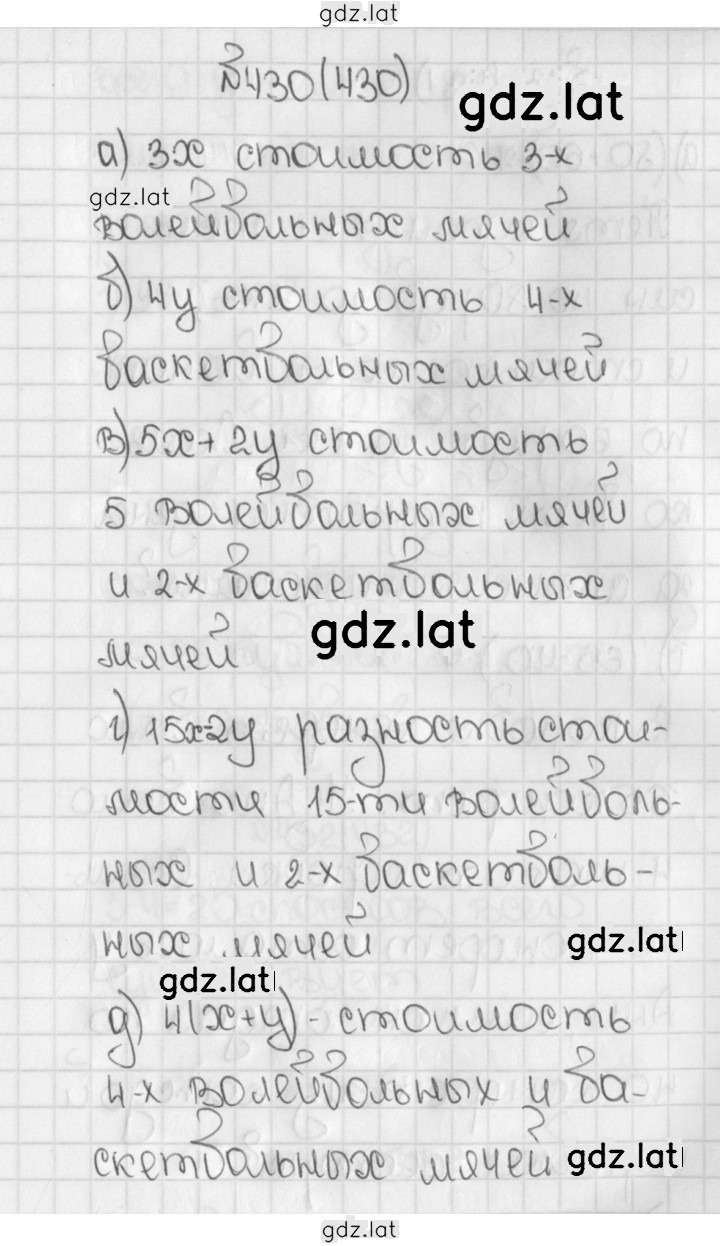 gdz.lat
№430(430)
gdz.lat
а) 3x стоимость 3-х
gdz.lat
волейбольных мячей
б) 4y стоимость 4-х
баскетбольных мячей
в) 5x + 2y стоимость
5 волейбольных мячей
и 2-х баскетбольных
gdz.lat
мячей
г) 15x-2y разность стои-
мости 15-ти волейболь-
ных и 2-х баскетболь-
ных мячей
gdz.lat
gdz.lat
д) 4(x+y) - стоимость
4-х волейбольных и ба-
скетбольных мячей
gdz.lat
gdz.lat